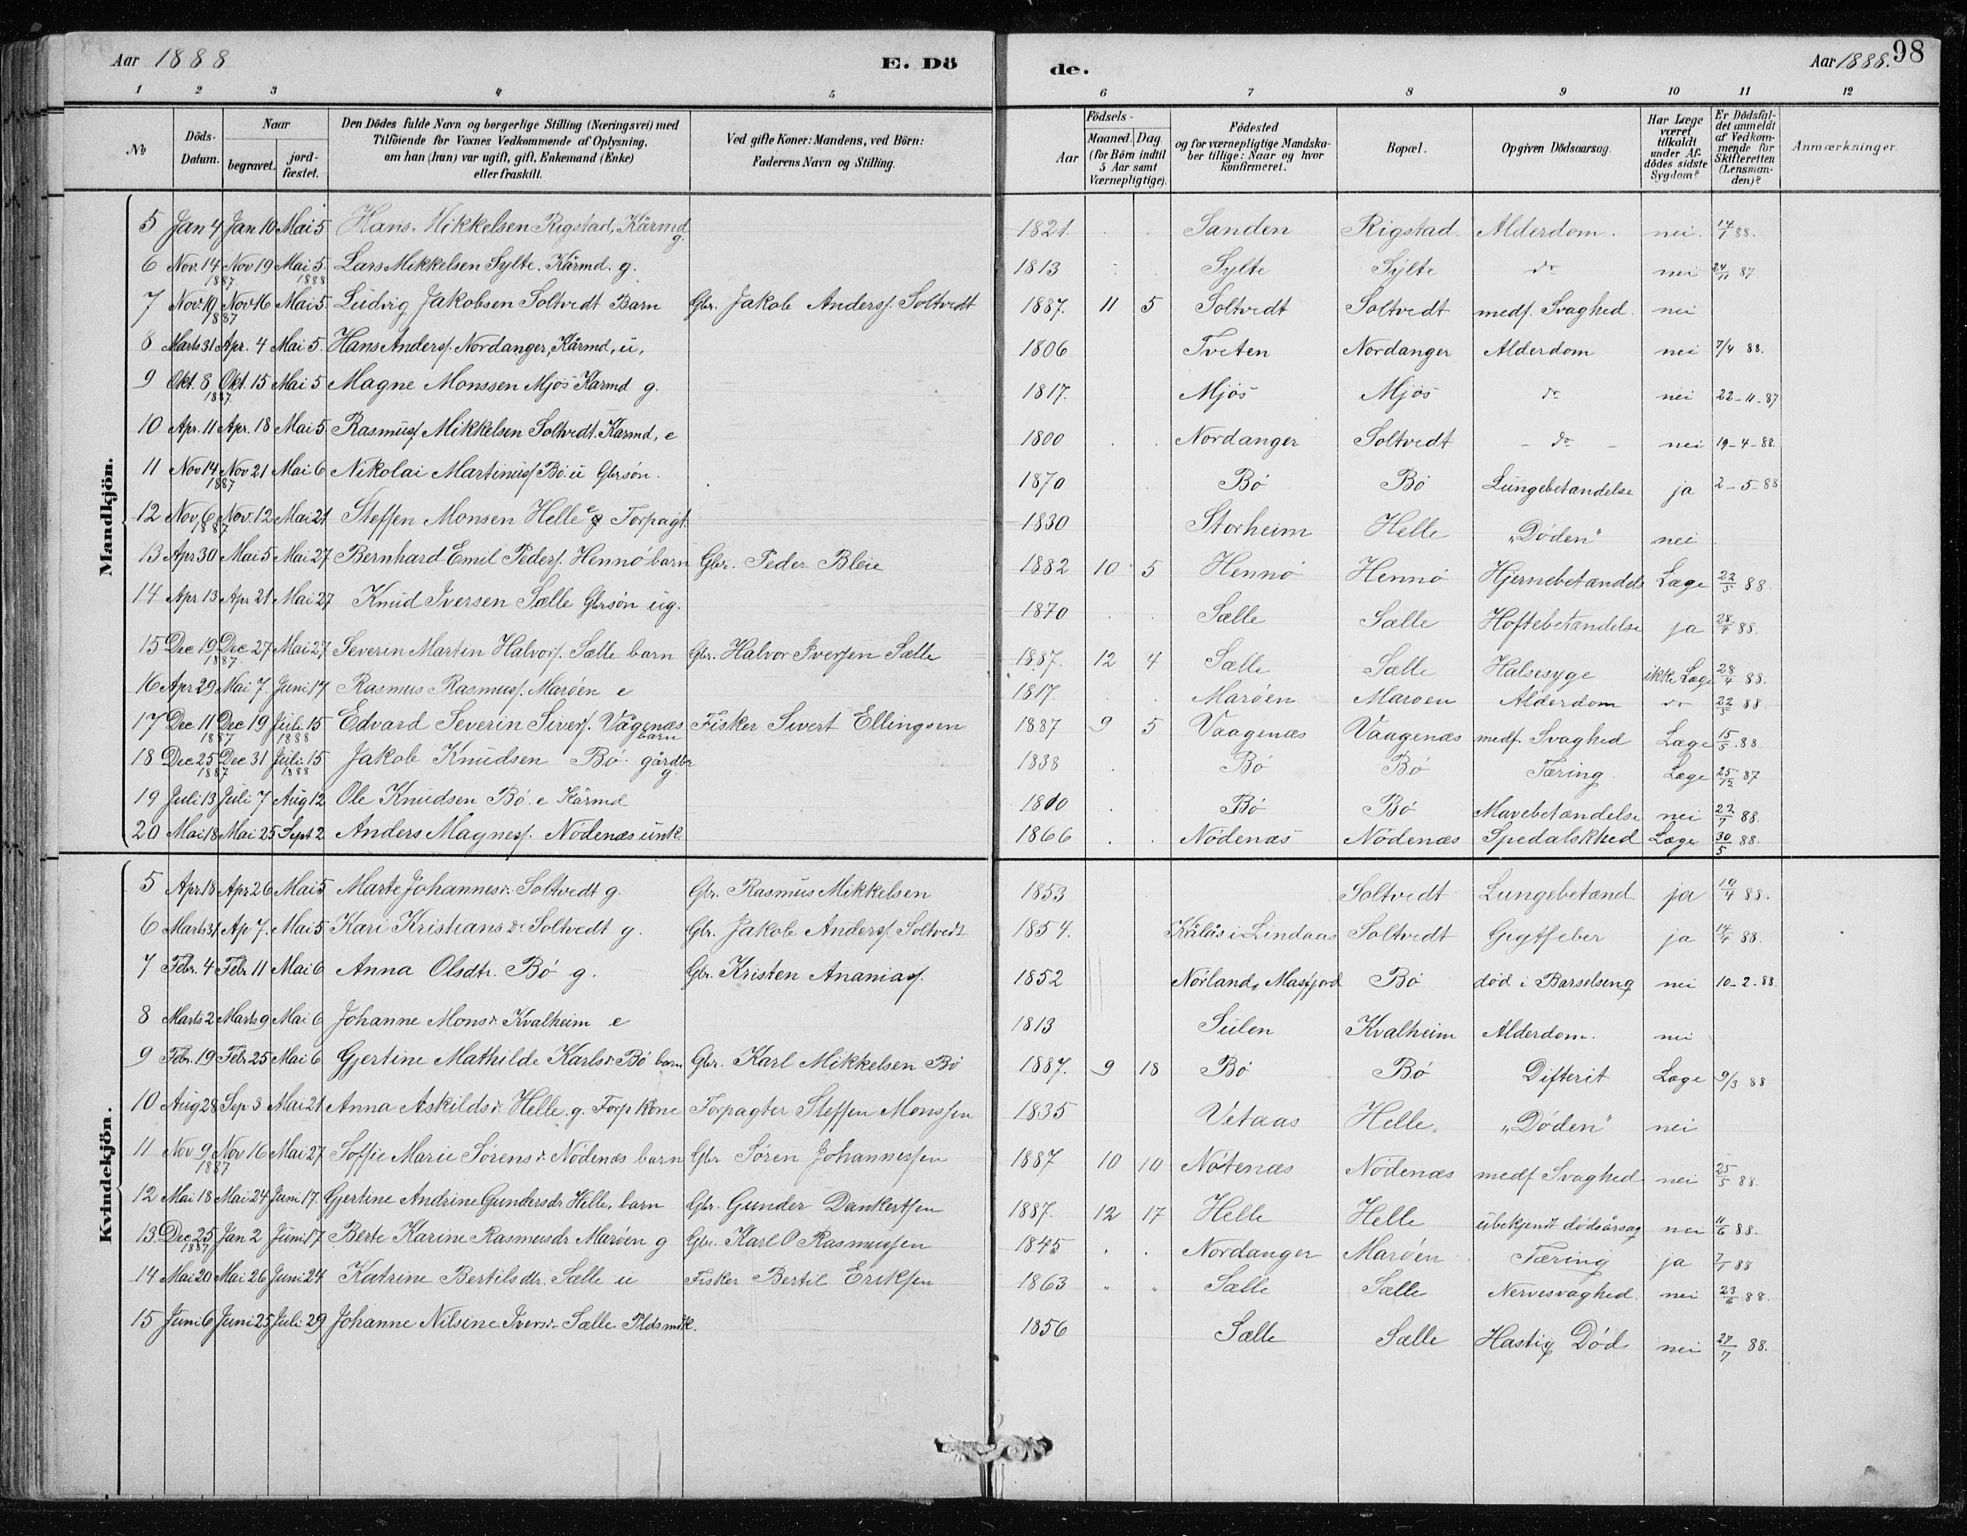 Aar 1888 E. Dö de. Aar 1888. 98
1 2 3 4 5 6 7 8 9 10 11 12
№ Döds-Datum. Naar begravet. jordfæstet. Den Dödes fulde Navn og borgerlige Stilling (Næringsvei) med Tilföiende for Voxnes Vedkommende af Oplysning, om han (hun) var ugift, gift, Enkemand (Enke) eller fraskilt. Ved gifte Koner: Mandens, ved Börn: Faderens Navn og Stilling. Födsels- Aar Maaned. Dag (for Börn indtil 5 Aar samt Værnepligtige). Födested og for værnepligtige Mandskaber tillige: Naar og hvor konfirmeret. Bopæl. Opgiven Dödsaarsag. Har Læge været tilkaldt under Afdödes sidste Sygdom? Er Dödsfaldet anmeldt af Vedkommende for Skifteretten (Lensmanden)? Anmærkninger.
Mandkjön.
5 Jan 4 Jan 10 Mai 5 Hans Mikkelsen Rigstad, Kårmd g. 1821. Sanden Rigstad. Alderdom. nei. 14/1 88.
6 Nov. 14 1887 Nov 19 Mai 5. 1888 Lars Mikkelsen Sylte. Kårmd. g. 1813 Sylte Sylte do nei 24/11 87.
7 Nov. 10 1887 Nov 16 Mai 5. Ludvig Jakobsen Soltvedt Barn Gbr. Jakob Anders. Soltvedt 1887. 11 5 Soltvedt Soltvedt medf. Svaghed. nei
8 Marts 31 Apr. 4 Mai 5. Hans Anders. Nordanger, Kårmd, u. 1806 Tveten Nordanger Alderdom nei 7/4 88.
9 Okt. 8 1887 Okt. 15 Mai 5 Magne Monssen Mjös Kårmd g. 1817. Mjös Mjös do nei 22-11-87
10 Apr. 11 Apr. 18 Mai 5. Rasmus Mikkelsen Soltvedt. Kårmd, e 1800 Nordanger Soltvedt do nei 19-4-88.
11 Nov 14 1887 Nov 21 Mai 6 Nikolai Martinus. Bö u Gbrsøn. 1870 Bö Bö Lungebetændelse ja 2-5-88
12 Nov. 6 1887 Nov. 12 Mai 21 Steffen Monsen Helle e Forpagt. 1830 Storheim Helle „Døden" nei
13 Apr 30 Mai 5 Mai 27 Bernhard Emil Peders. Hennö barn Gbr. Peder Bleie 1882 10 5 Hennö Hennö Hjernebetændels Læge 22/5 88.
14 Apr 13 Apr 21 Mai 27 Knud Iversen Sælle Gbrsøn ug. 1870 Sælle Sælle Hoftebetændelse ja 28/4 88.
15 Dec 19 1887. Dec 27 Mai 27 Severin Martin Halvors. Sælle barn Gbr. Halvor Iversen Sælle 1887. 12 4 Sælle Sælle Halsesyge ikke Læge 28/4 88.
16 Apr 29 Mai 7. Juni 17 Rasmus Rasmus. Maröen e 1817 Maröen Maröen Alderdom do 22/5 88.
17 Dec 11 1887 Dec 19 Juli 15 1888 Edvard Severin Sivers. Vågenæs barn Fisker Sivert Ellingsen 1887 9 5 Vaagenæs Vaagenæs medf. Svaghed Læge 15/5 88
18 Dec 25 1887 Dec 31 Juli 15 1888 Jakob Knudsen Bö gårdbr g. 1838 Bö Bö Tæring Læge 25/12 87
19 Juli 13 Juli 7 Aug 12 Ole Knudsen Bö e Kårmd 1810 Bö Bö Mavebetændelse nei 27/7 88.
20 Mai 18 Mai 25 Sept 2 Anders Magnes. Nödenæs unk. 1866 Nödenæs Nödenæs Spedalskhed Læge 30/5 88.
Kvindekjön.
5 Apr 18 Apr 26 Mai 5 Marte Johannesdr. Soltvedt g. Gbr. Rasmus Mikkelsen 1853 Soltvedt Lungebetænd. ja 19/4 88.
6 Marts 31 Ap 7. Mai 5 Kari Kristiansdr Soltvedt g. Gbr. Jakob Anders. Soltvedt 1854. Kålås i Lindaas Soltvedt Gigtfeber ja 14/4 88.
7 Febr. 4 Febr 11 Mai 6 Anna Olsdtr. Bö g. Gbr. Kristen Ananias. 1852 Norland, Masfjord Bö död i Barselseng nei 10-2-88.
8 Marts 2 Marts 9 Mai 6 Johanne Monsdr Kvalheim e 1813 Sulen Kvalheim Alderdom. nei
9 Febr. 19 Febr 25 Mai 6 Gjertine Mathilde Karlsdr Bö barn Gbr. Karl Mikkelsen Bö 1887. 9 18 Bö Bö Difterit Læge 9/3 88
10 Aug 28 Sep 3 Mai 21 Anna Askildsdr. Helle g. Forp kone Forpagter Steffen Monssen 1835 Vetaas Helle. „Döden" nei
11 Nov 9 1887 Nov 16 Mai 27 Soffie Marie Sørensdr Nödenæs barn Gbr Sören Johannessen 1887 10 10 Nötenæs Nödenæs medf Svaghed nei 25/5 88.
12 Mai 18 Mai 24 Juni 17. Gjertine Andrine Gundersdr Helle, barn Gbr. Gunder Dankertsen 1887. 12 17 Helle Helle ubekjendt dödsårsag nei 11/6 88.
13. Dec 25 1887 Jan 2 Juni 17 Berte Karine Rasmusdr Maröen g Gbr. Karl O Rasmussen 1845 Nordanger Maröen Tæring ja 7/1 88
14 Mai 20 Mai 26 Juni 24 Katrine Bertilsdtr. Sælle u Fisker Bertil Eriksen 1863 " " Sælle Sælle Nervesvaghed. nei 23/6 88.
15 Juni 6 Juni 25 Juli 29 Johanne Nilsine Iversdr Sælle 1856 Sælle Sælle Hastig Död nei 27/7 88.